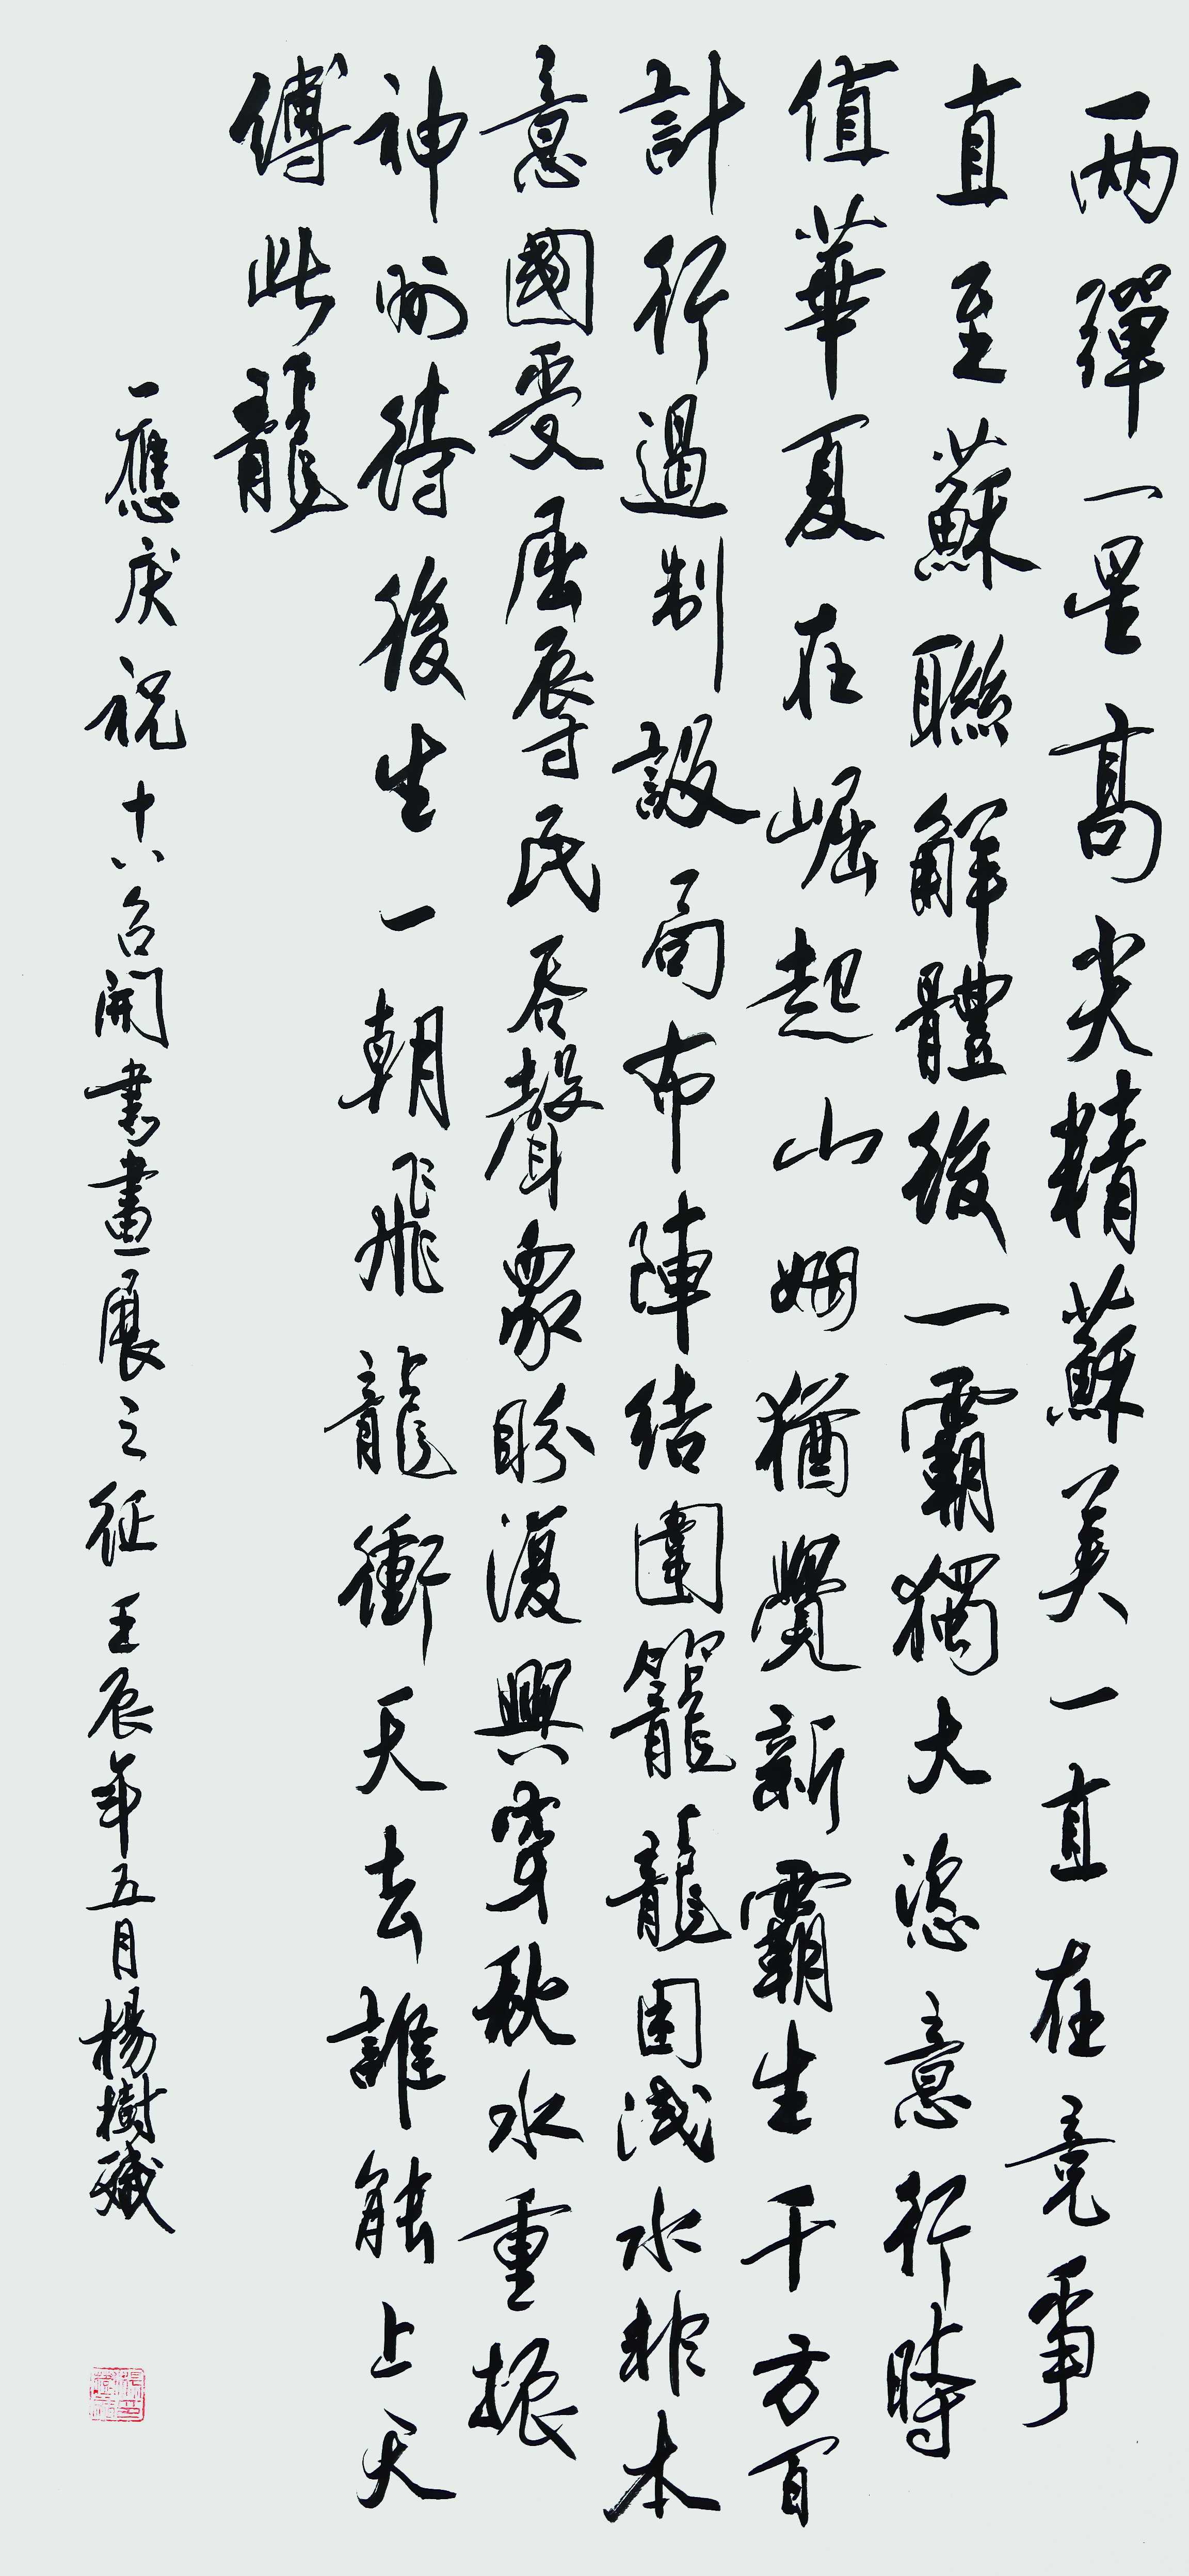 兩彈一星高尖精蘇美一直在竞爭
直至蘇聯解體後一霸獨大恣意行時
值華夏在崛起山姆猶覺新霸生千方百
計行遏制設局布陣結圍籠龍困淺水非本
意國受屈辱民吞聲眾盼復興穿秋水重振
神州待後生一朝飛龍衝天去誰能上天
縛此龍
一應庆祝十八召開書畫展之征壬辰年五月楊樹